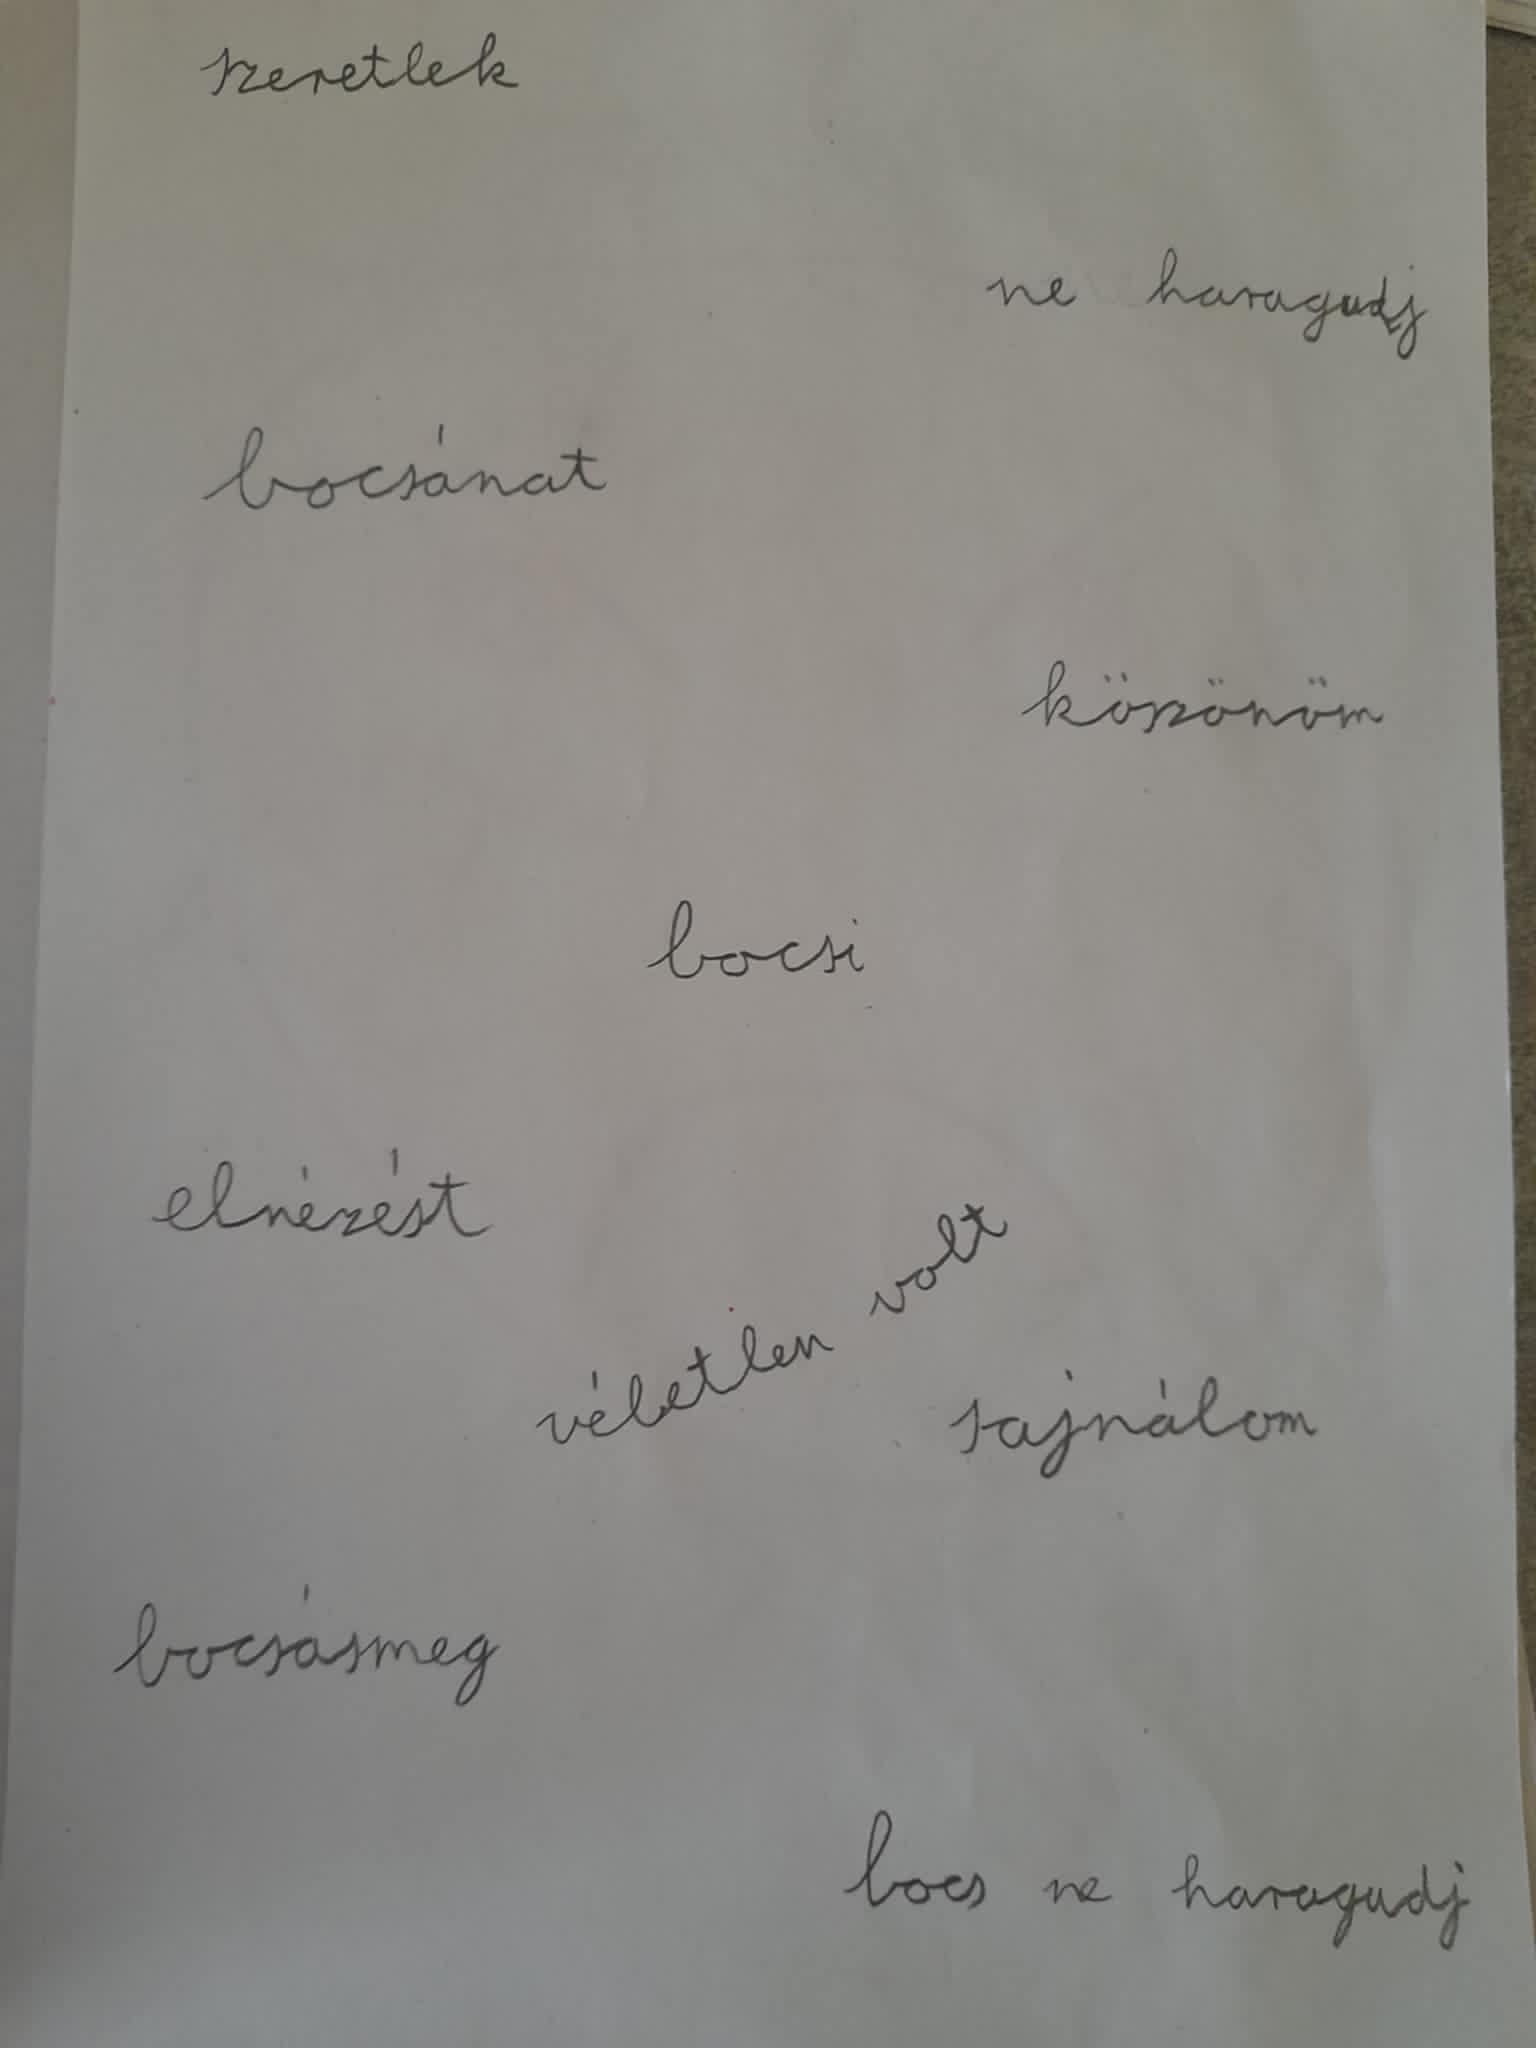 szeretlek
ne haragudj
bocsánat
köszönöm
bocsi
elnézést
véletlen volt
sajnálom
bocsásmeg
bocs ne haragudj